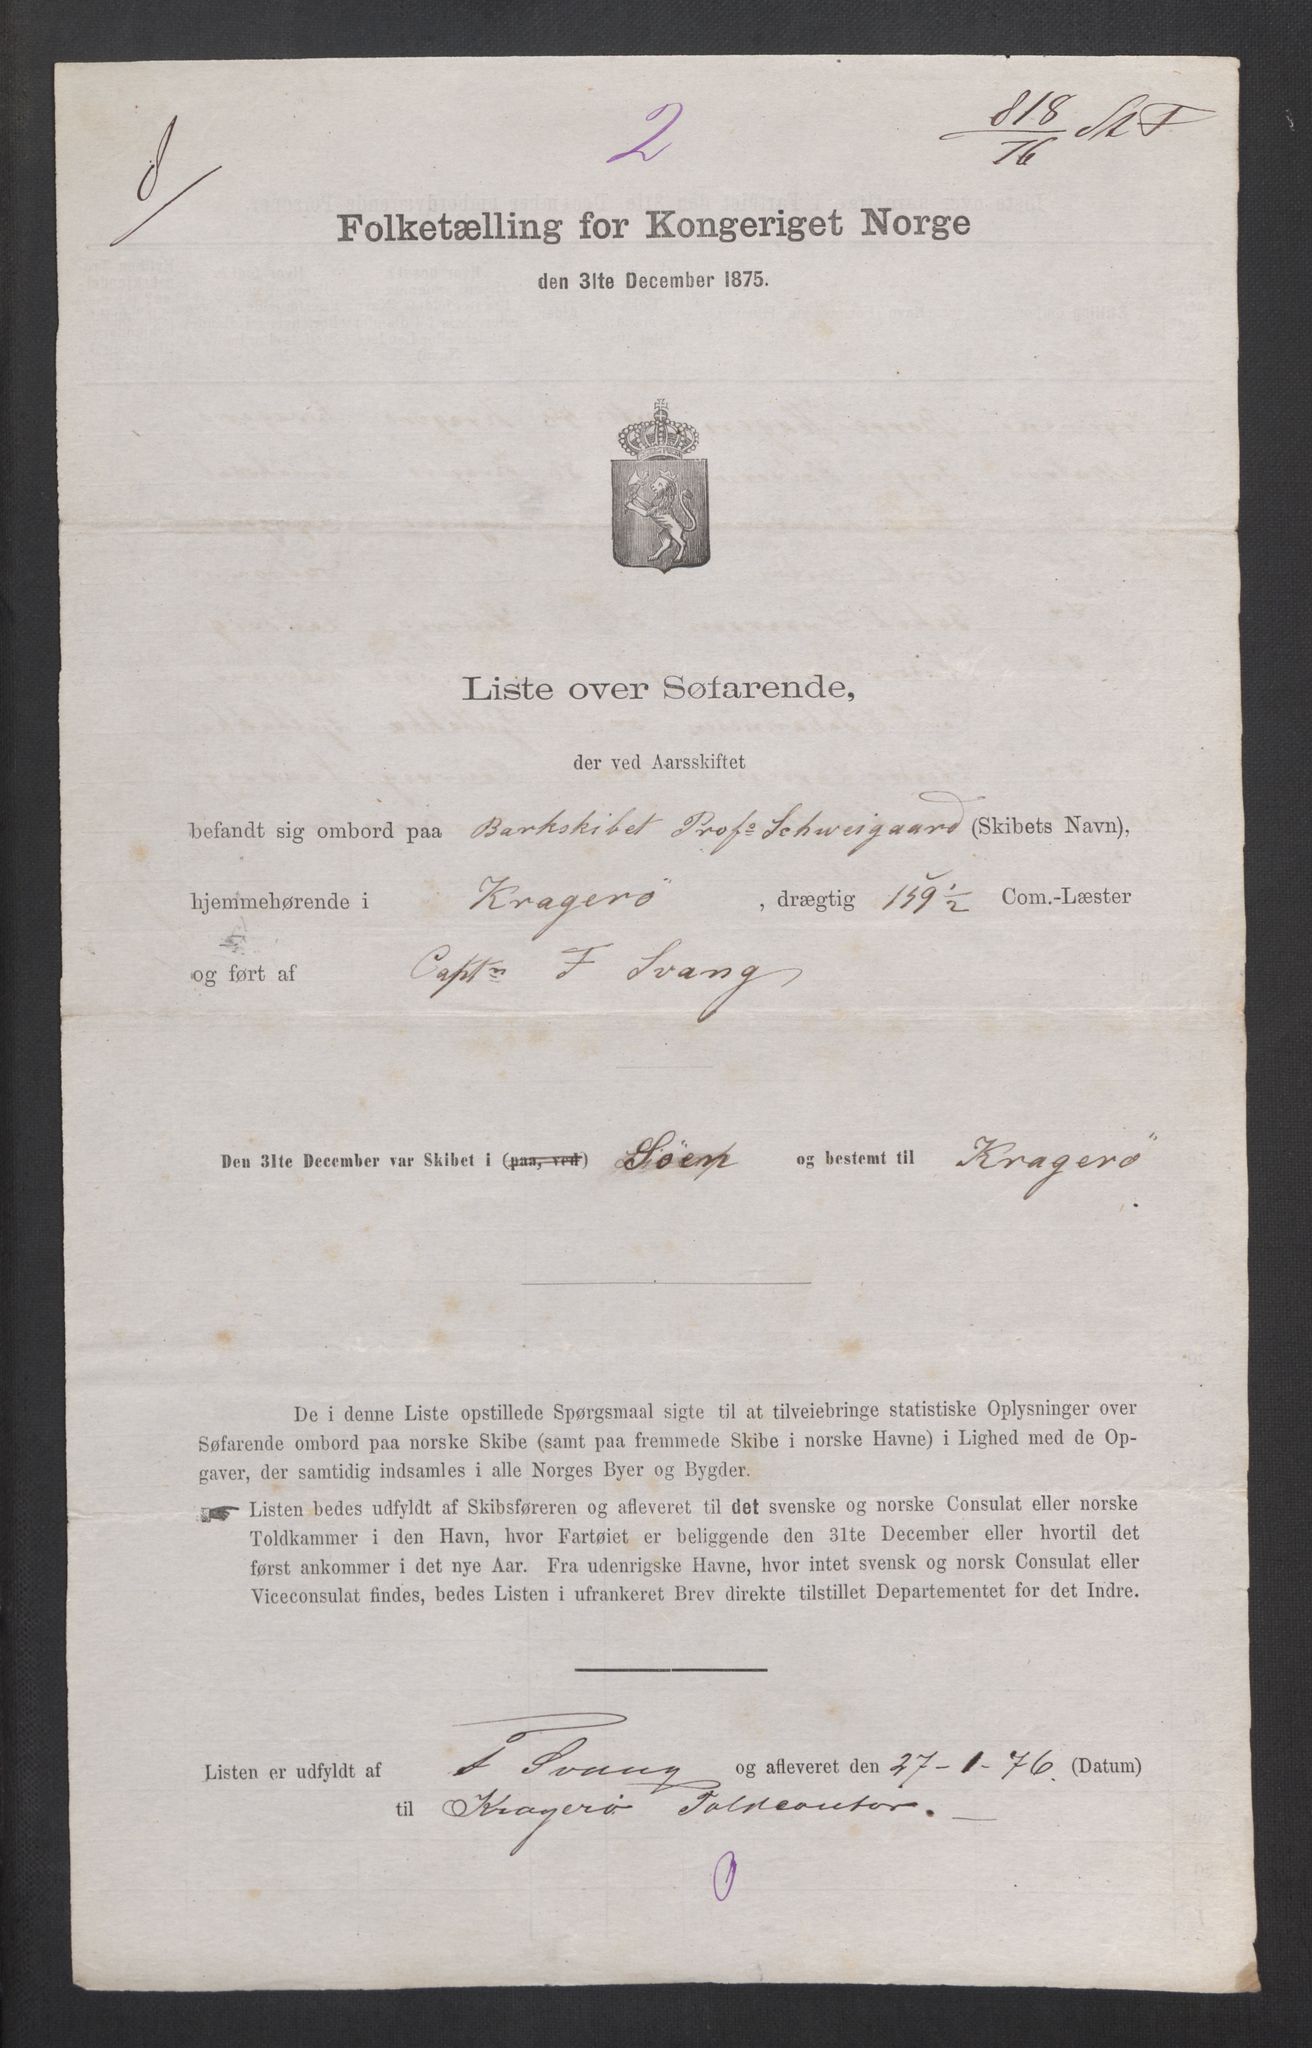 8/
2
818/76 St F
Folketælling for Kongeriget Norge
den 31te December 1875.
Liste over Søfarende,
der ved Aarsskiftet
befandt sig ombord paa Barkskibet Profs Schweigaard (Skibets Navn),
hjemmehørende i Kragerö, drægtig 159 1/2 Com.-Læster
og ført af Captn F Svang
Den 31te December var Skibet i (paa, ved) Söen og bestemt til Kragerö
De i denne Liste opstillede Spørgsmaal sigte til at tilveiebringe statistiske Oplysninger over
Søfarende ombord paa norske Skibe (samt paa fremmede Skibe i norske Havne) i Lighed med de Op-
gaver, der samtidig indsamles i alle Norges Byer og Bygder.
☛ Listen bedes udfyldt af Skibsføreren og afleveret til det svenske og norske Consulat eller norske
Toldkammer i den Havn, hvor Fartøiet er beliggende den 31te December eller hvortil det
først ankommer i det nye Aar. Fra udenrigske Havne, hvor intet svensk og norsk Consulat eller
Viceconsulat findes, bedes Listen i ufrankeret Brev direkte tilstillet Departementet for det Indre.
Listen er udfyldt af F Svang og afleveret den 27-1-76. (Datum)
til Kragerö Toldcontor.